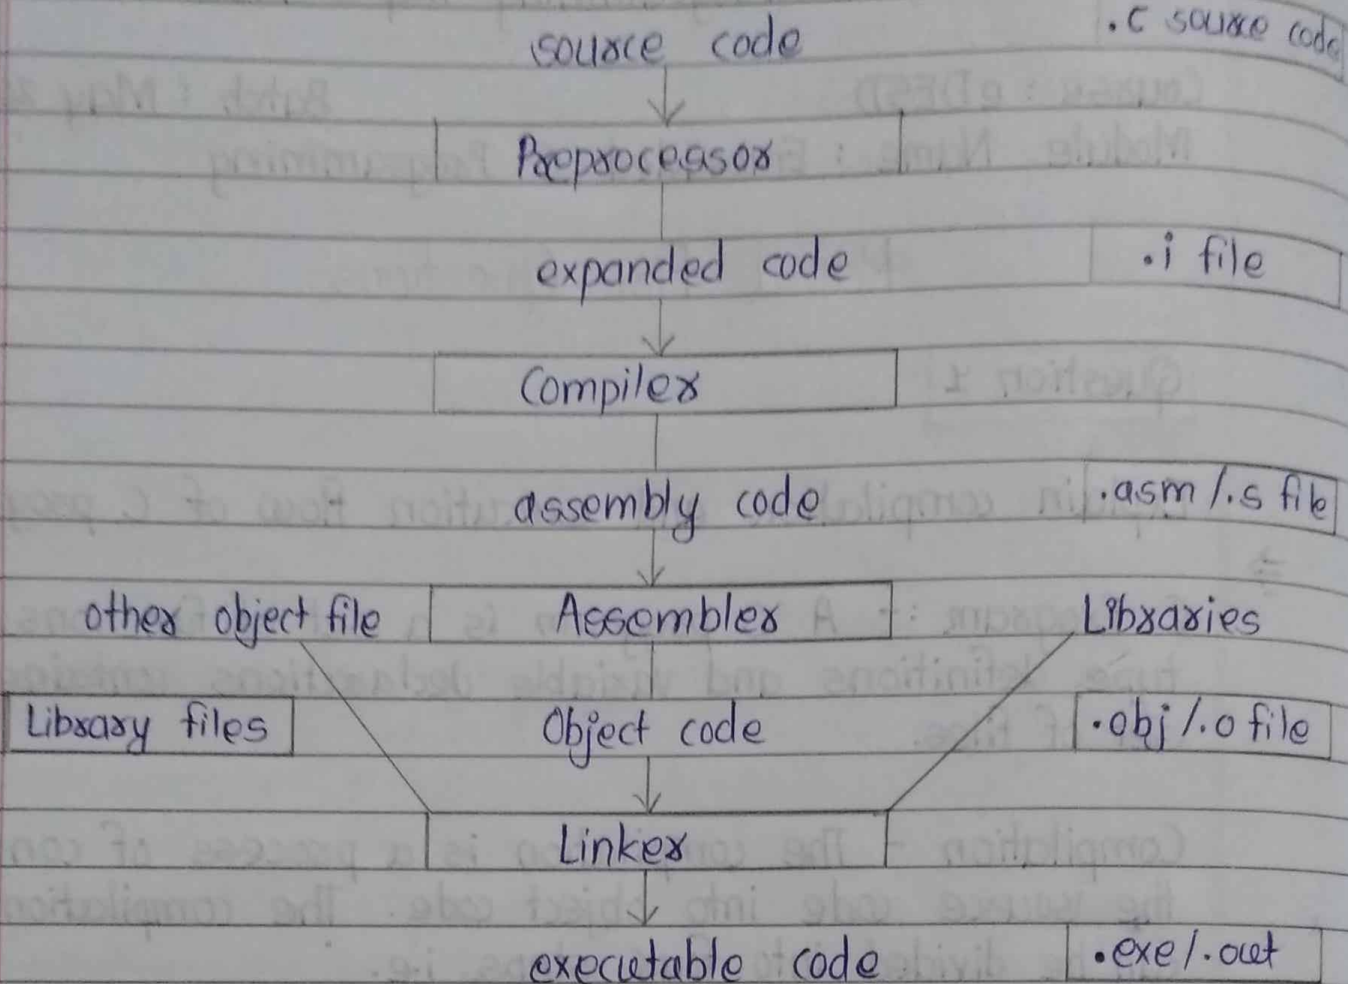 source code .c source code
Preprocessor
expanded code .i file
Compiler
assembly code .asm /.s file
other object file Assembler Libraries
Library files Object code .obj /.o file
Linker
executable code .exe/.out